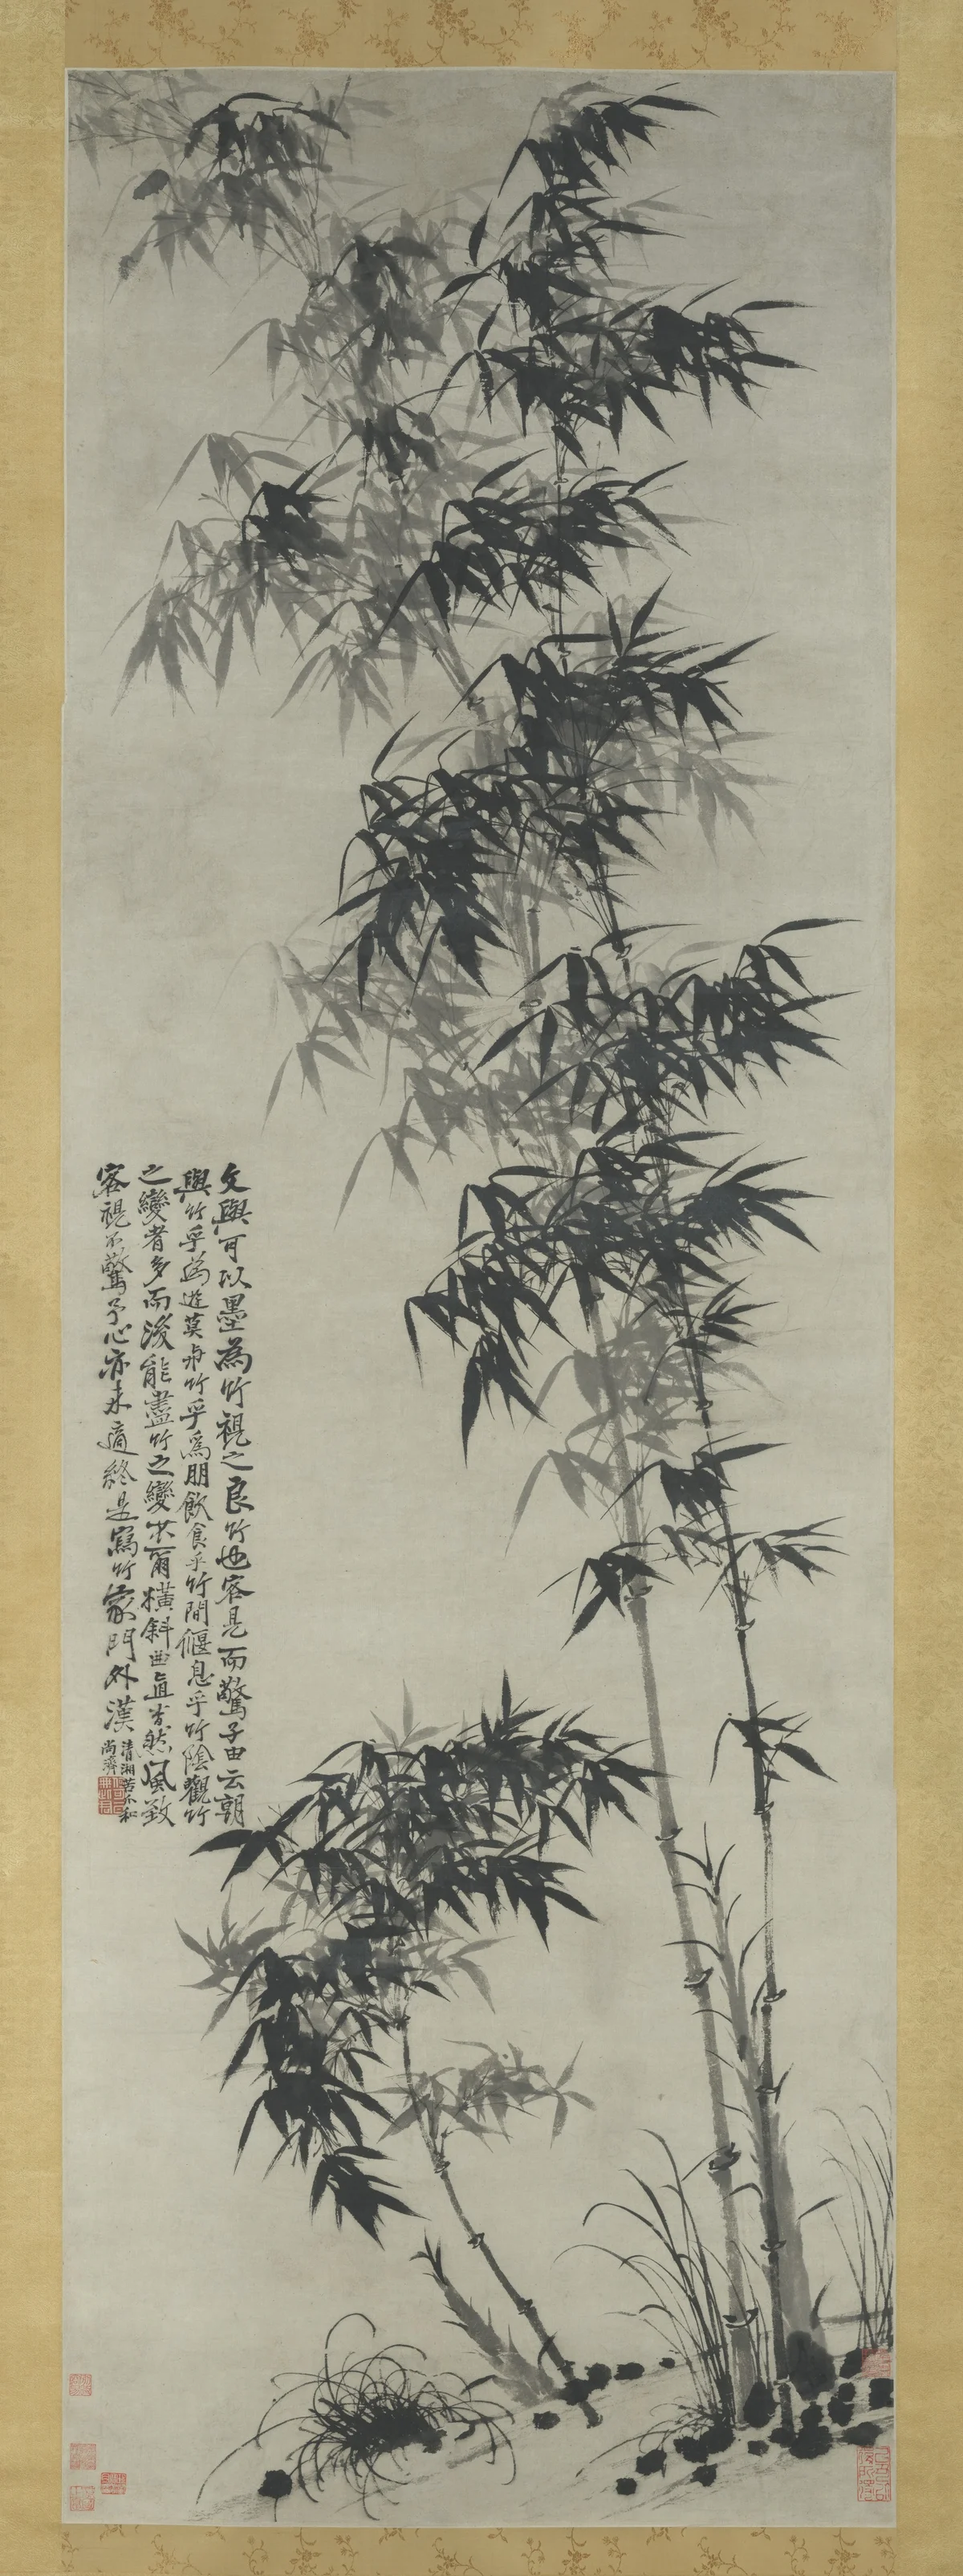 文與可以墨為竹視之良竹也客見而驚子由云朝
與竹乎為遊莫與竹乎爲朋飲食乎竹間偃息乎竹陰觀竹
之變者多而後能盡竹之變求爾橫斜曲直杳然風致
客視不驚予心亦未適終是寫竹家門外漢
清湘苦瓜和
尚濟